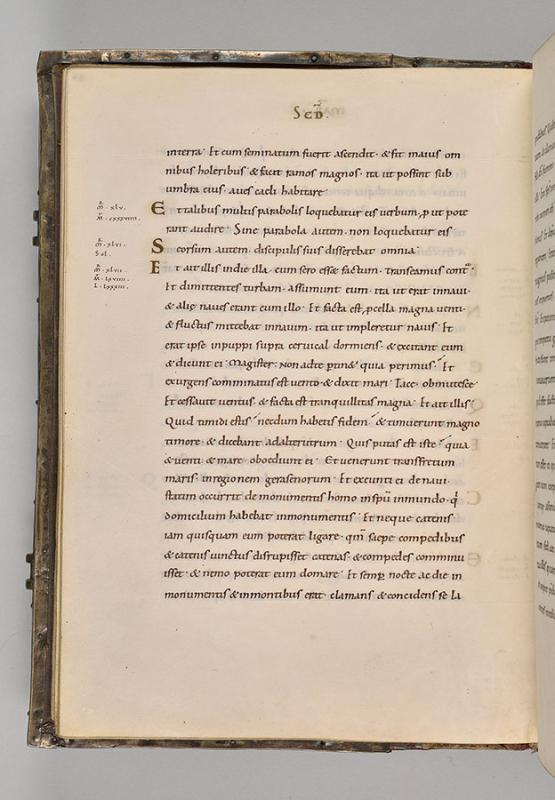 SCD
interra · Et cum seminatum fuerit ascendit · & fit maius om
nibus holeribus · & facit ramos magnos · ita ut possint sub
umbra eius · aues caeli habitare
m̄ · xlv ·
Et talibus multis parabolis loquebatur eis uerbum, p̱ ut pote
rant audire · Sine parabola autem · non loquebatur eis
m̄ · xlvi ·
Sol ·
Seorsum autem · discipulis suis disserebat omnia ·
m̄ · xlvii ·
m̄ · lxviiii ·
l · lxxxiii ·
Et ait illis indie illa · cum sero esset factum · transeamus cont̄ ·
Et dimittentes turbam · assumunt eum · ita ut erat innaui ·
& alię naues erant cum illo · Et facta est p̱cella magna uenti ·
& fluctus mittebat innauim · ita ut impleretur nauis · Et
erat ipse inpuppi supra ceruical dormiens · & excitant eum
& dicunt ei · Magister · non adte p̱tin& quia perimus · Et
exurgens comminatus est uento · & dixit mari · Tace · obmutesce ·
Et cessauit uentus · & facta est tranquillitas magna · Et ait illis ·
Quid timidi estis · necdum habetis fidem · & timuerunt magno
timore · & dicebant adalterutrum · Quis putas est iste · quia
& uenti & mare oboediunt ei · Et uenerunt transfretum
maris · inregionem gerasenorum · Et exeunti ei de naui ·
statim occurrit de monumentis homo inspū inmundo · q̄
domicilium habebat inmonumentis · Et neque catenis
iam quisquam eum poterat ligare · qm̄ saepe compedibus
& catenis uinctus disrupisset catenas · & compedes comminu
isset · & nemo poterat eum domare · Et semp̱ nocte ac die in
monumentis & inmontibus erat · clamans & concidens se la